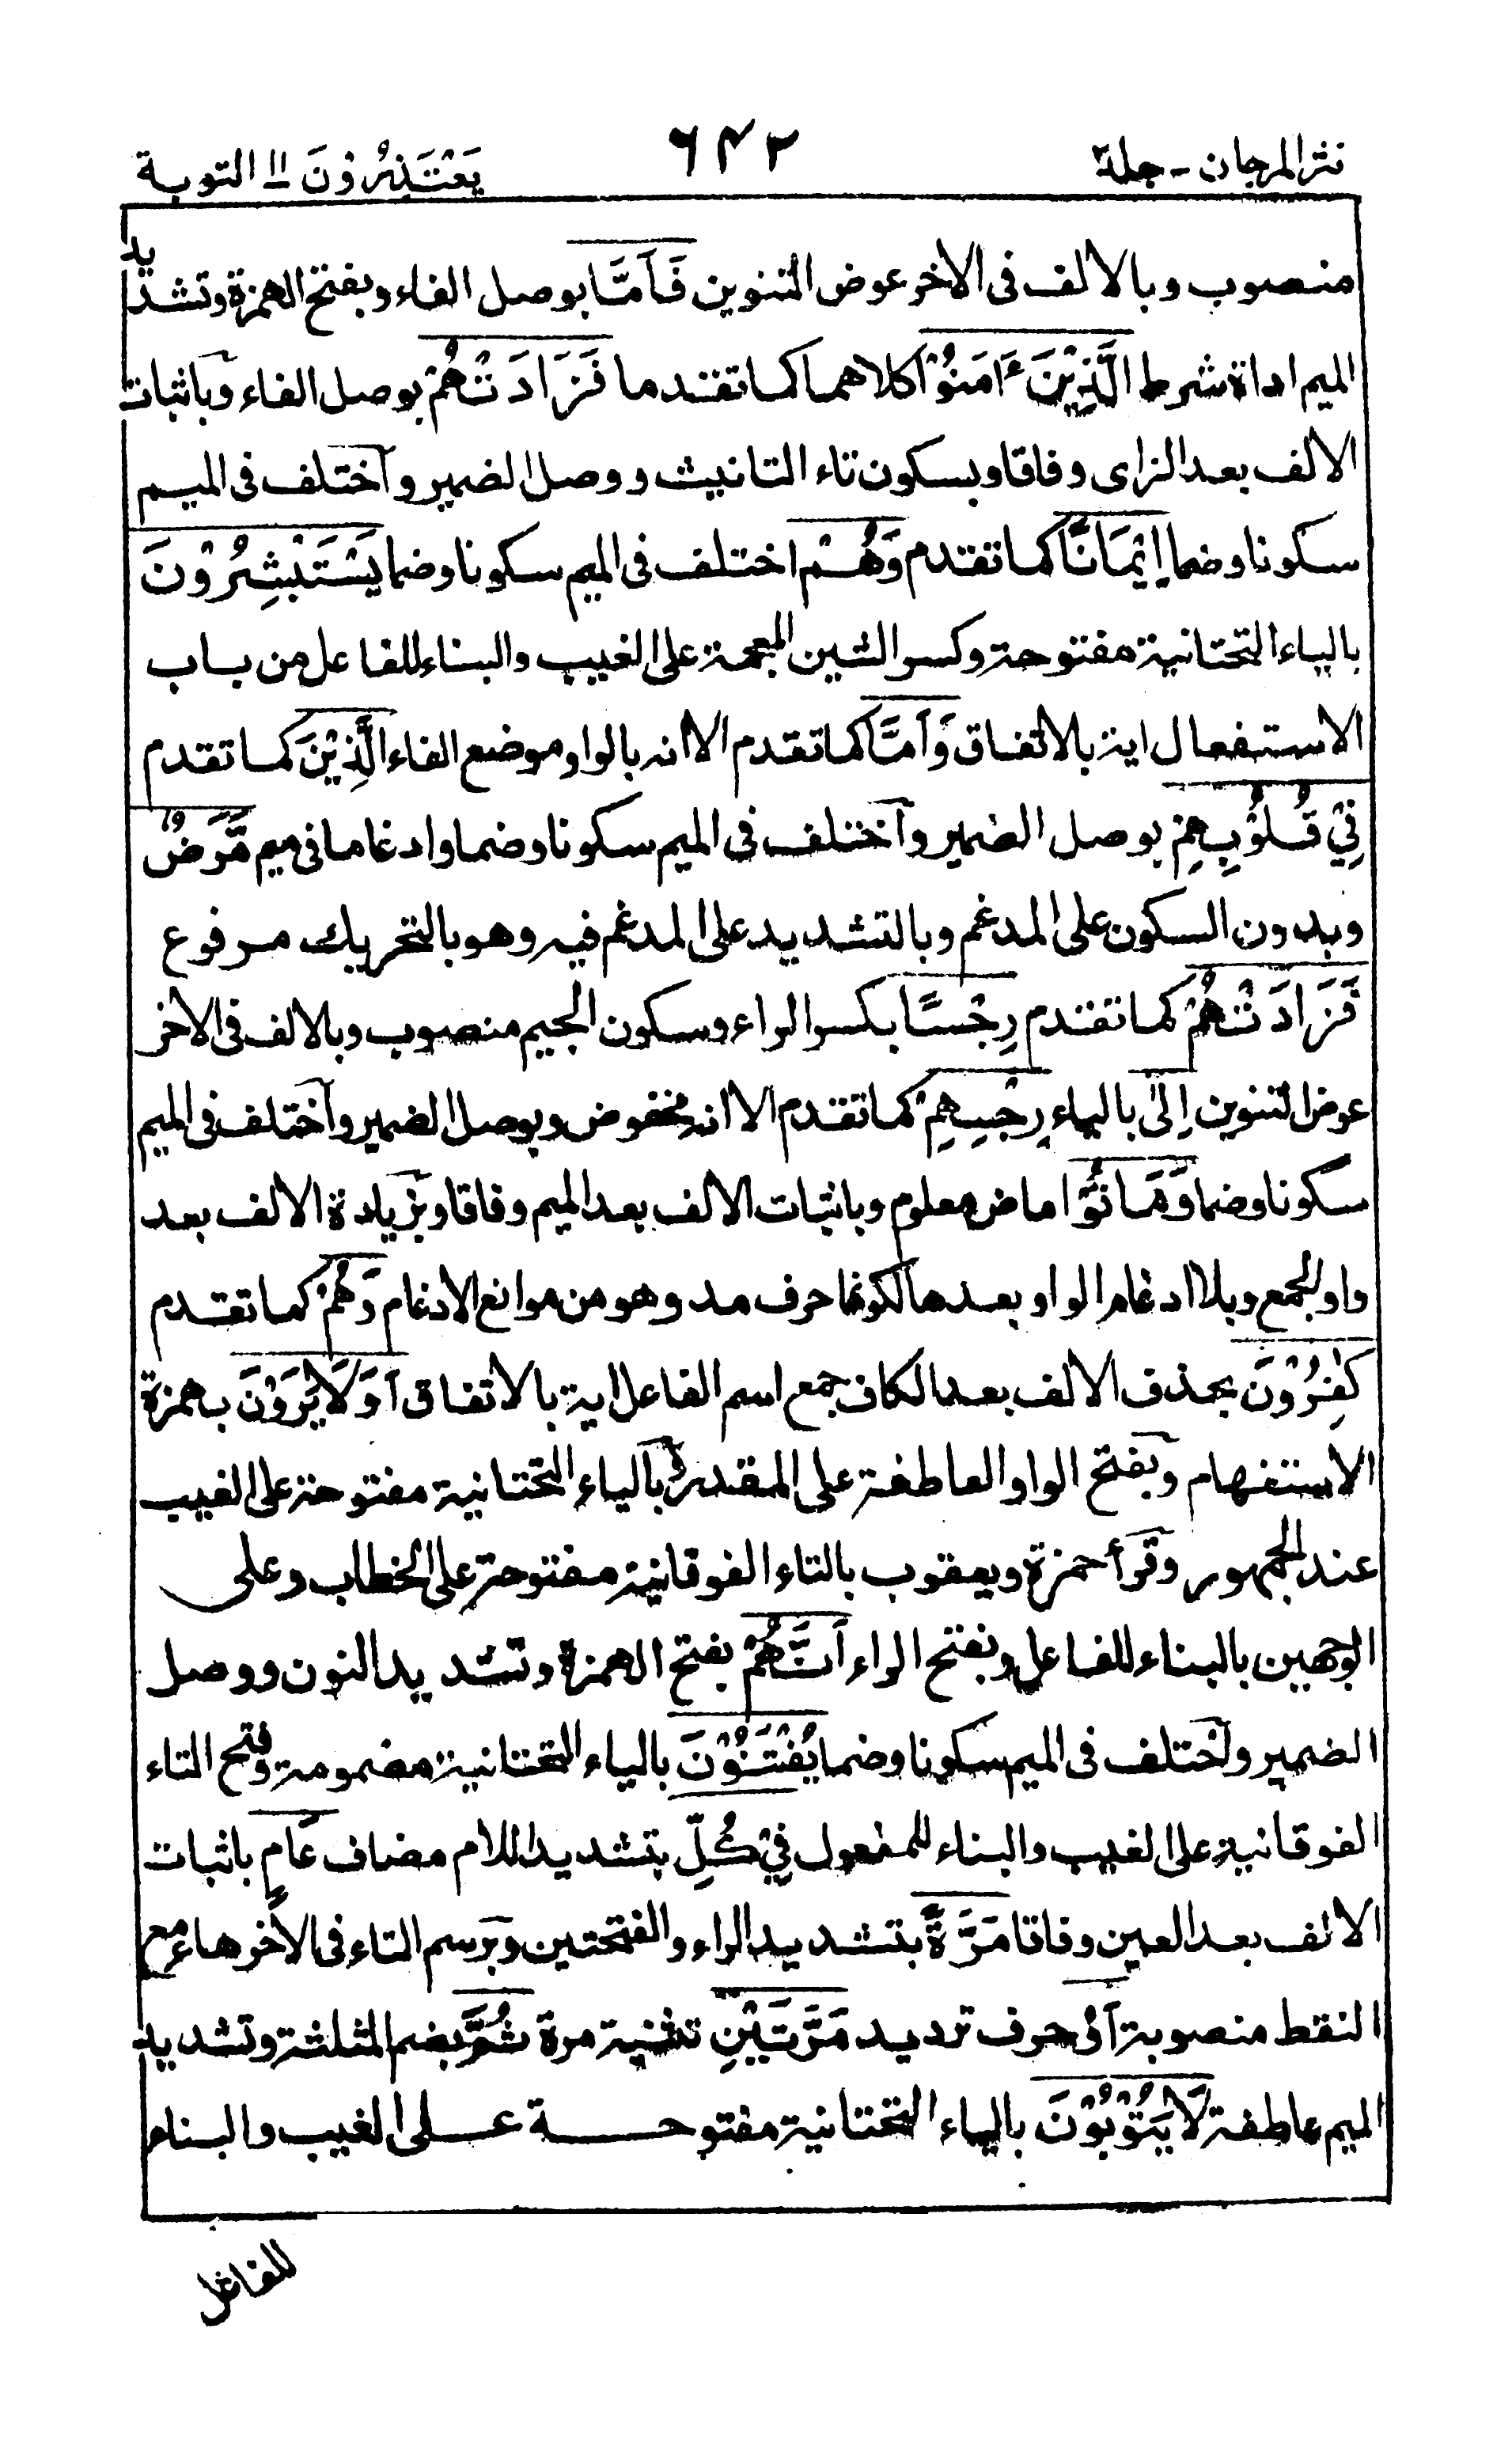 نثر المرجان - جلد ٢
٦٤٢
يَعْتَذِرُوْنَ ١١ التوبة
منصوب وبالالف فى الاخر عوض التنوين فَاَمَّا بوصل الفاء وبفتح الهمزة وتشديد
الميم اداة شرط الَّذِيْنَ ءَامَنُوْا كلاهما كما تقدما فَزَادَتْهُمْ بوصل الفاء وباثبات
الالف بعد الزاى وفاقا وبسكون تاء التانيث ووصل الضمير وآختلف فى الميم
سكونا وضما اِيْمَانًا كما تقدم وَهُمْ اختلف فى الميم سكونا وضما يَسْتَبْشِرُوْنَ
بالياء التحتانية مفتوحة وكسر الشين المعجمة على الغيب والبناء للفاعل من باب
الاستفعال اية بالاتفاق وَاَمَّا كما تقدم الا انه بالواو موضع الفاء الَّذِيْنَ كما تقدم
فِيْ قُلُوْبِهِمْ بوصل الضمير وآختلف فى الميم سكونا وضما وادغاما فى ميم مَّرَضٌ
وبدون السكون على المدغم وبالتشديد على المدغم فيه وهو بالتحريك مرفوع
فَزَادَتْهُمْ كما تقدم رِجْسًا بكسر الراء وسكون الجيم منصوب وبالالف فى الاخر
عوض التنوين اِلىٰ بالياء رِجْسِهِمْ كما تقدم الا انه مخفوض وبوصل الضمير وآختلف فى الميم
سكونا وضما وَمَاتُوْا ماض معلوم وباثبات الالف بعد الميم وفاقا وبزيادة الالف بعد
واو الجمع وبلا ادغام الواو بعدها لكونها حرف مد وهو من موانع الادغام وَهُمْ كما تقدم
كٰفِرُوْنَ بحذف الالف بعد الكاف جمع اسم الفاعل اية بالاتفاق اَوَلَا يَرَوْنَ بهمزة
الاستفهام وبفتح الواو العاطفة على المقدرة بالياء التحتانية مفتوحة على الغيب
عند الجمهور وقرأ حمزة ويعقوب بالتاء الفوقانية مفتوحة على الخطاب وعلى
الوجهين بالبناء للفاعل وبفتح الراء اَنَّهُمْ بفتح الهمزة وتشديد النون ووصل
الضمير وآختلف فى الميم سكونا وضما يُفْتَنُوْنَ بالياء التحتانية مضمومة وفتح التاء
الفوقانية على الغيب والبناء للمفعول فِيْ كُلِّ بتشديد اللام مضاف عَامٍ باثبات
الالف بعد العين وفاقا مَرَّةً بتشديد الراء والفتحتين وبرسم التاء فى الاخر هاء مع
النقط منصوبة اَوْ حرف ترديد مَرَّتَيْنِ تثنية مرة ثُمَّ بضم المثلثة وتشديد
الميم عاطفة لَا يَتُوْبُوْنَ بالياء التحتانية مفتوحة على الغيب والبناء
للفاعل